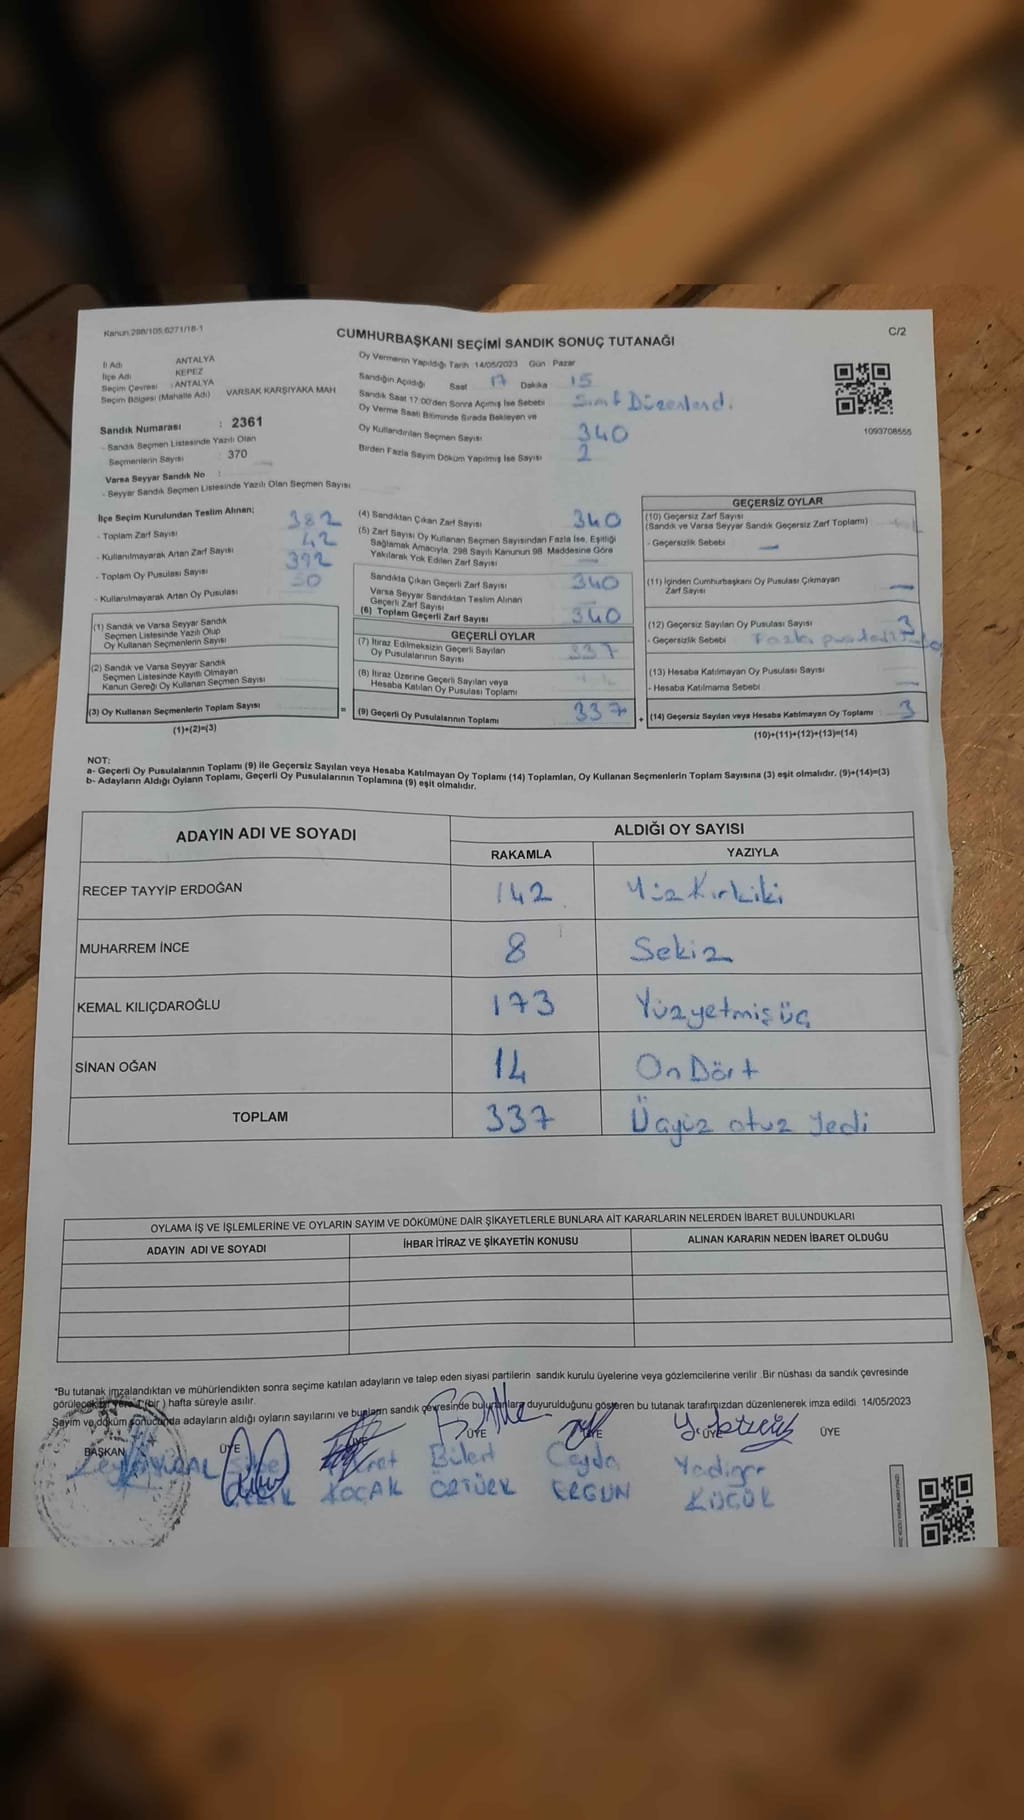 Kanun.298/105,6271/18-1
C/2
CUMHURBAŞKANI SEÇİMİ SANDIK SONUÇ TUTANAĞI
İl Adı ANTALYA
İlçe Adı KEPEZ
Seçim Çevresi : ANTALYA
Seçim Bölgesi (Mahalle Adı) VARSAK KARŞIYAKA MAH
Sandık Numarası : 2361
- Sandık Seçmen Listesinde Yazılı Olan
Seçmenlerin Sayısı : 370
Varsa Seyyar Sandık No :
- Seyyar Sandık Seçmen Listesinde Yazılı Olan Seçmen Sayısı
Oy Vermenin Yapıldığı Tarih 14/05/2023 Gün Pazar
Sandığın Açıldığı Saat 17 Dakika 15
Sandık Saat 17:00'den Sonra Açılmış İse Sebebi Sınıf Düzenlend.
Oy Verme Saati Bitiminde Sırada Bekleyen ve
Oy Kullandırılan Seçmen Sayısı 340
Birden Fazla Sayım Döküm Yapılmış İse Sayısı 2
1093708555
İlçe Seçim Kurulundan Teslim Alınan;
- Toplam Zarf Sayısı 382
- Kullanılmayarak Artan Zarf Sayısı 42
- Toplam Oy Pusulası Sayısı 392
- Kullanılmayarak Artan Oy Pusulası 50
(1) Sandık ve Varsa Seyyar Sandık
Seçmen Listesinde Yazılı Olup
Oy Kullanan Seçmenlerin Sayısı
(2) Sandık ve Varsa Seyyar Sandık
Seçmen Listesinde Kayıtlı Olmayan
Kanun Gereği Oy Kullanan Seçmen Sayısı
(3) Oy Kullanan Seçmenlerin Toplam Sayısı
(1)+(2)=(3)
=
(4) Sandıktan Çıkan Zarf Sayısı 340
(5) Zarf Sayısı Oy Kullanan Seçmen Sayısından Fazla İse, Eşitliği
Sağlamak Amacıyla, 298 Sayılı Kanunun 98. Maddesine Göre
Yakılarak Yok Edilen Zarf Sayısı
Sandıkta Çıkan Geçerli Zarf Sayısı 340
Varsa Seyyar Sandıktan Teslim Alınan
Geçerli Zarf Sayısı
(6) Toplam Geçerli Zarf Sayısı 340
GEÇERLİ OYLAR
(7) İtiraz Edilmeksizin Geçerli Sayılan
Oy Pusulalarının Sayısı 337
(8) İtiraz Üzerine Geçerli Sayılan veya
Hesaba Katılan Oy Pusulası Toplamı
(9) Geçerli Oy Pusulalarının Toplamı 337
+
GEÇERSİZ OYLAR
(10) Geçersiz Zarf Sayısı
(Sandık ve Varsa Seyyar Sandık Geçersiz Zarf Toplamı)
- Geçersizlik Sebebi —
(11) İçinden Cumhurbaşkanı Oy Pusulası Çıkmayan
Zarf Sayısı —
(12) Geçersiz Sayılan Oy Pusulası Sayısı 3
- Geçersizlik Sebebi Fazla
(13) Hesaba Katılmayan Oy Pusulası Sayısı
- Hesaba Katılmama Sebebi —
(14) Geçersiz Sayılan veya Hesaba Katılmayan Oy Toplamı 3
(10)+(11)+(12)+(13)=(14)
NOT:
a- Geçerli Oy Pusulalarının Toplamı (9) ile Geçersiz Sayılan veya Hesaba Katılmayan Oy Toplamı (14) Toplamları, Oy Kullanan Seçmenlerin Toplam Sayısına (3) eşit olmalıdır. (9)+(14)=(3)
b- Adayların Aldığı Oyların Toplamı, Geçerli Oy Pusulalarının Toplamına (9) eşit olmalıdır.
ADAYIN ADI VE SOYADI
ALDIĞI OY SAYISI
RAKAMLA YAZIYLA
RECEP TAYYİP ERDOĞAN 142 Yüz Kırkiki
MUHARREM İNCE 8 Sekiz
KEMAL KILIÇDAROĞLU 173 Yüzyetmişüç
SİNAN OĞAN 14 On Dört
TOPLAM 337 Üçyüz otuz yedi
OYLAMA İŞ VE İŞLEMLERİNE VE OYLARIN SAYIM VE DÖKÜMÜNE DAİR ŞİKAYETLERLE BUNLARA AİT KARARLARIN NELERDEN İBARET BULUNDUKLARI
ADAYIN ADI VE SOYADI İHBAR İTİRAZ VE ŞİKAYETİN KONUSU ALINAN KARARIN NEDEN İBARET OLDUĞU
*Bu tutanak imzalandıktan ve mühürlendikten sonra seçime katılan adayların ve talep eden siyasi partilerin sandık kurulu üyelerine veya gözlemcilerine verilir .Bir nüshası da sandık çevresinde
görülecek bir yere 1 (bir ) hafta süreyle asılır.
Sayım ve döküm sonucunda adayların aldığı oyların sayılarını ve bunların sandık çevresinde bulunanlara duyurulduğunu gösteren bu tutanak tarafımızdan düzenlenerek imza edildi. 14/05/2023
BAŞKAN ÜYE ÜYE ÜYE ÜYE ÜYE
Bülent Ceyda Yadigar
KOÇAK ÖZTÜRK ERGÜN KÜÇÜK